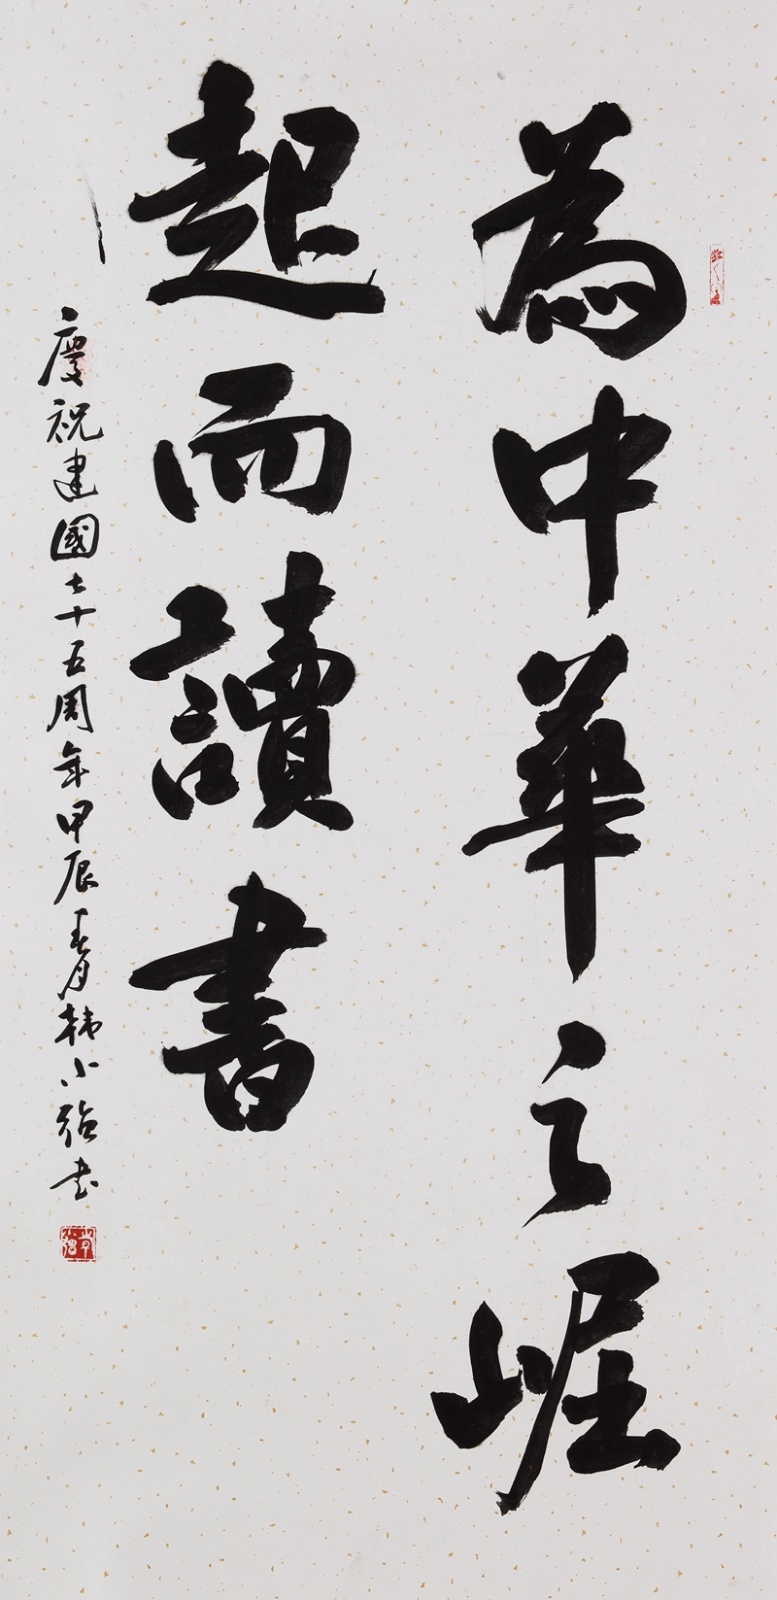 為中華之崛
起而讀書
慶祝建國七十五周年甲辰春月韩小強书